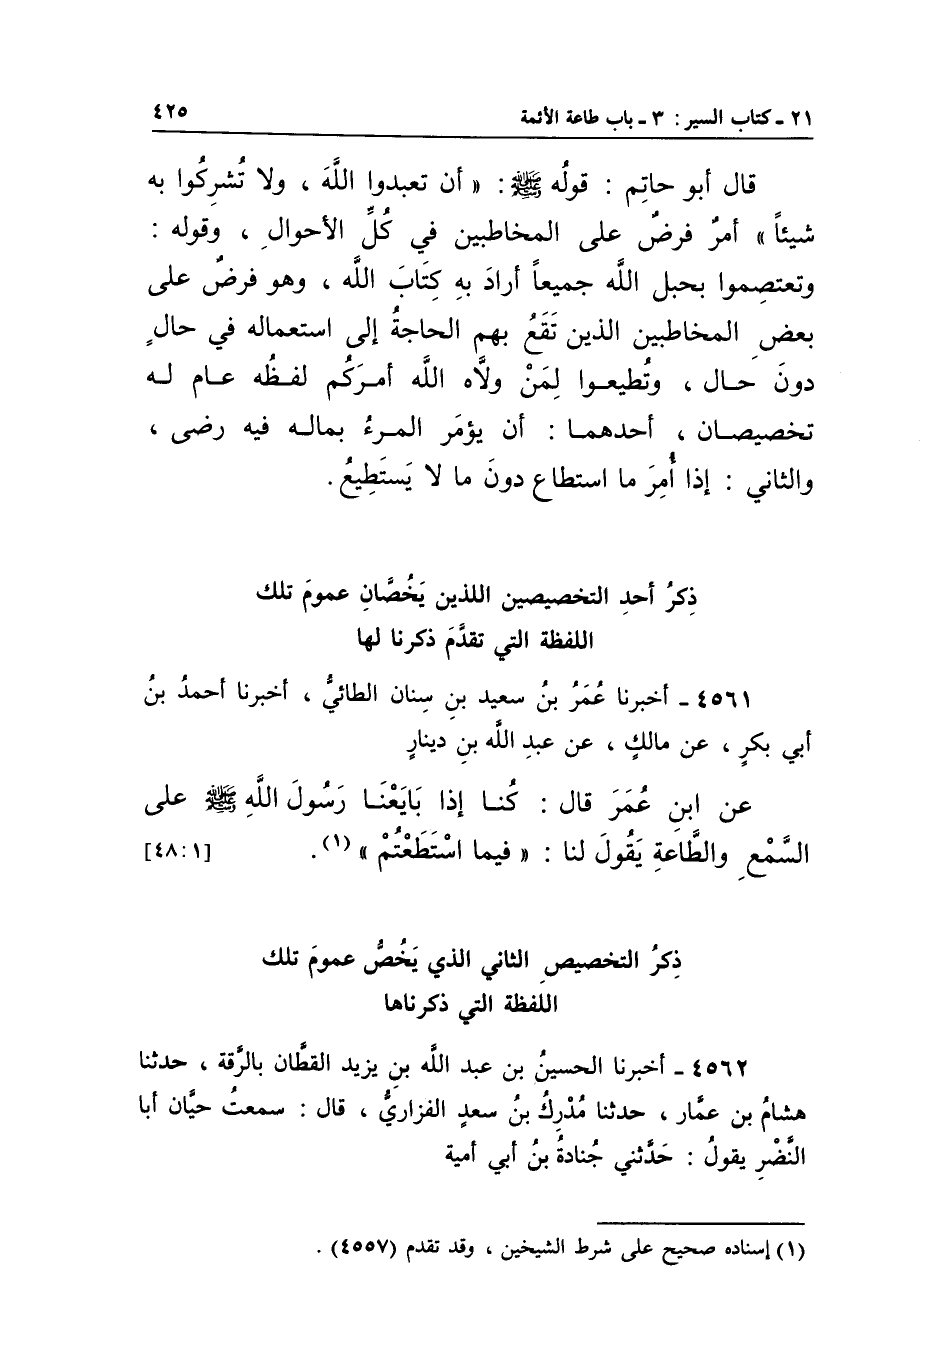 ٢١ ـ كتاب السير : ٣ ـ باب طاعة الأئمة ٤٢٥
قال أبو حاتِم : قولُه ﷺ : « أن تعبدوا اللَّهَ ، ولا تُشرِكُوا به
شيئاً » أمرٌ فرضٌ على المخاطبين في كُلِّ الأحوالِ ، وقوله :
وتعتصِموا بحبل اللَّه جميعاً أرادَ بهِ كِتَابَ اللَّه ، وهو فرضٌ على
بعضِ المخاطبين الذين تَقَعُ بهم الحاجةُ إلى استعماله في حالٍ
دونَ حـال ، وتُطيعـوا لِمَنْ ولاَّه اللَّه أمـرَكُم لفـظُه عـام لـه
تخصيصـان ، أحدهمـا : أن يؤمَر المـرءُ بمالـه فيه رضى ،
والثاني : إذا أُمِرَ ما استطاع دونَ ما لا يَستَطِيعُ .
ذِكرُ أحدِ التخصيصين اللذين يَخُصَّانِ عمومَ تلك
اللفظة التي تقدَّمَ ذكرنا لها
٤٥٦١ ـ أخبرنا عُمَرُ بنُ سعيد بنِ سِنان الطائيُّ ، أخبرنا أحمدُ بنُ
أبي بكرٍ ، عن مالكٍ ، عن عبدِ اللَّه بنِ دينارٍ
عن ابنِ عُمَرَ قال : كُنـا إذا بَايَعْنَـا رَسُولَ اللَّهِ ﷺ على
السَّمْعِ والطَّاعةِ يَقُولَ لنا : « فيما اسْتَطَعْتُمْ » (١). [١ :٤٨]
ذِكرُ التخصيصِ الثاني الذي يَخُصُّ عمومَ تلك
اللفظة التي ذكرناها
٤٥٦٢ ـ أخبرنا الحسينُ بن عبد اللَّه بنِ يزيد القطَّان بالرَّقة ، حدثنا
هشامُ بن عمَّار ، حدثنا مُدْرِكُ بنُ سعدٍ الفزاريُّ ، قال : سمعتُ حيَّان أبا
النَّضْرِ يقولُ : حَدَّثني جُنادةُ بنُ أبي أمية
(١) إسناده صحيح على شرط الشيخين ، وقد تقدم (٤٥٥٧) .